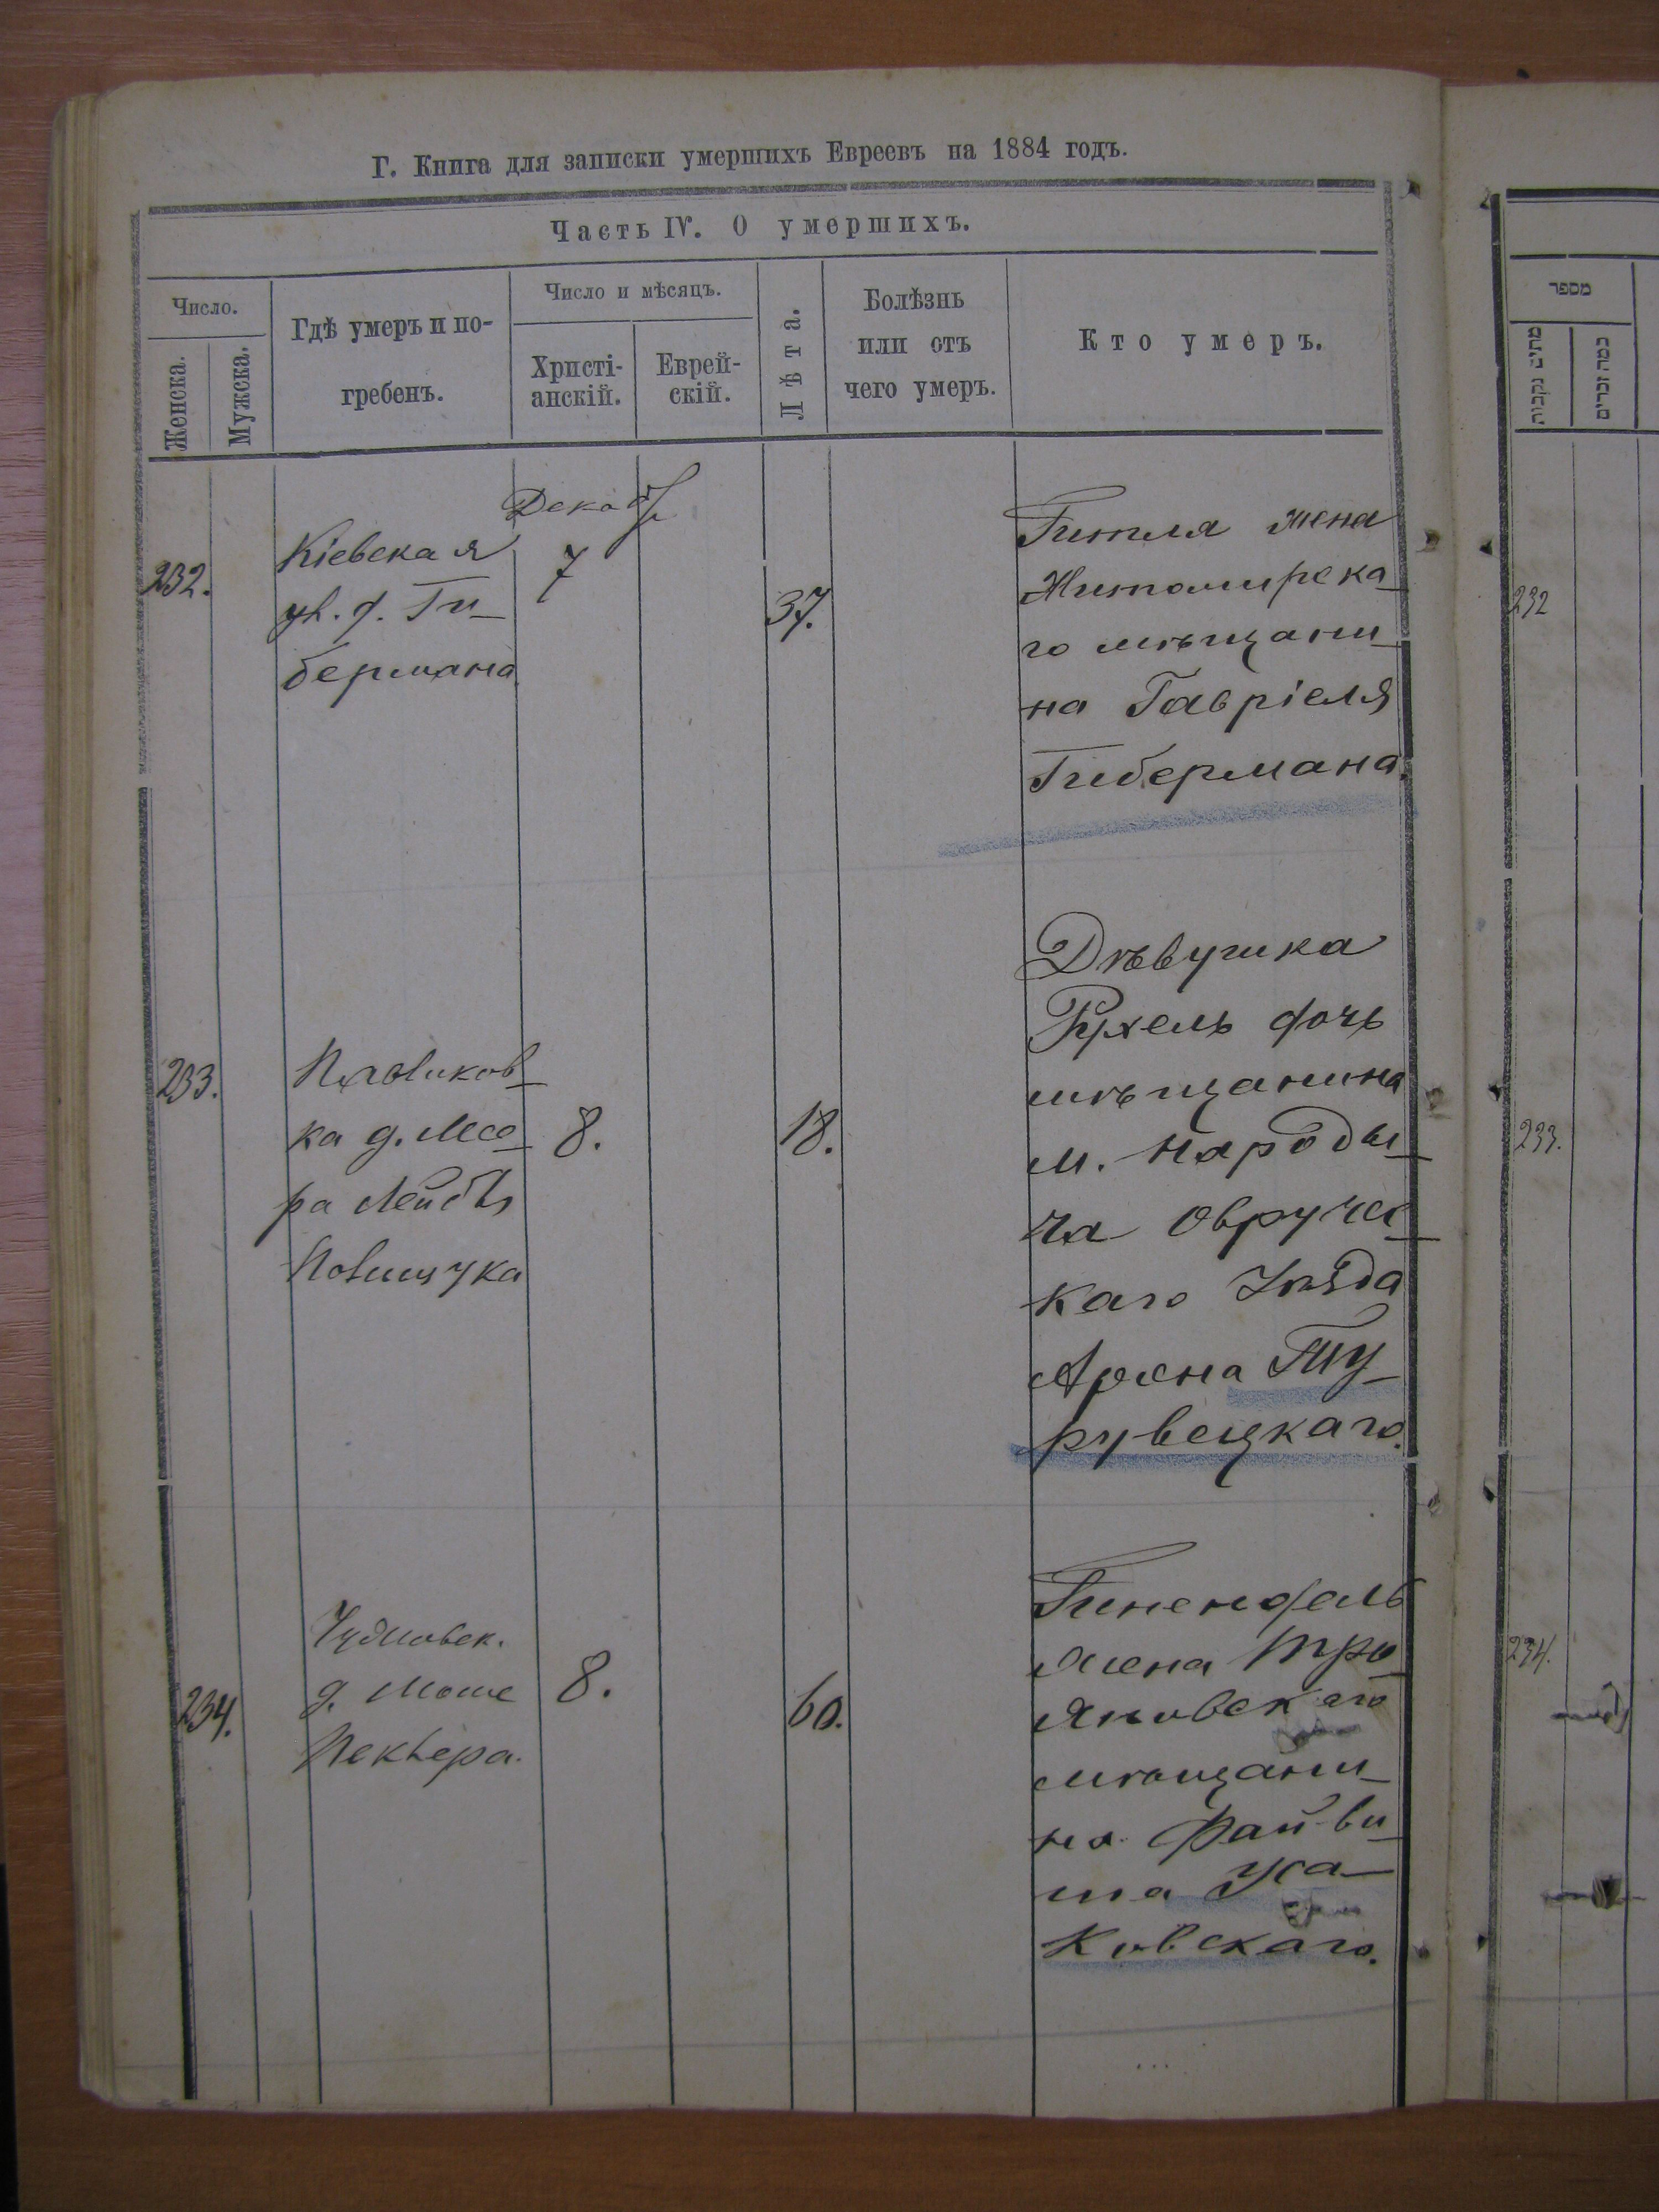 Г. Книга для записки умершихъ Евреевъ на 1884 годъ.
Часть IV. О умершихъ.
Число.
Женска.
Мужска.
Гдѣ умеръ и по-
гребенъ.
Число и мѣсяцъ.
Христі-
анскій.
Еврей-
скій.
Лѣта.
Болѣзнь
или отъ
чего умеръ.
Кто умеръ.
232.
Кіевская
ул. д. Ги-
бермана
Декабр
7
37.
Гитля жена
Житомирска-
го мѣщани-
на Гавріеля
Гибермана.
233.
ка д.
ра Лейбы
8.
18.
Дѣвушка
Рухель дочь
мѣщанина
м. Народы-
ча Овручс-
каго Уѣзда
Арона Ту-
рувецкаго.
234.
Чудновск.
д. Моше
Пеккера.
8.
60.
Гинендель
жена Тро-
яновскаго
мѣщани-
на Файви-
ша Уса-
ковскаго.
מספר
מתים נקבות
כמה זכרים
232
233.
234.